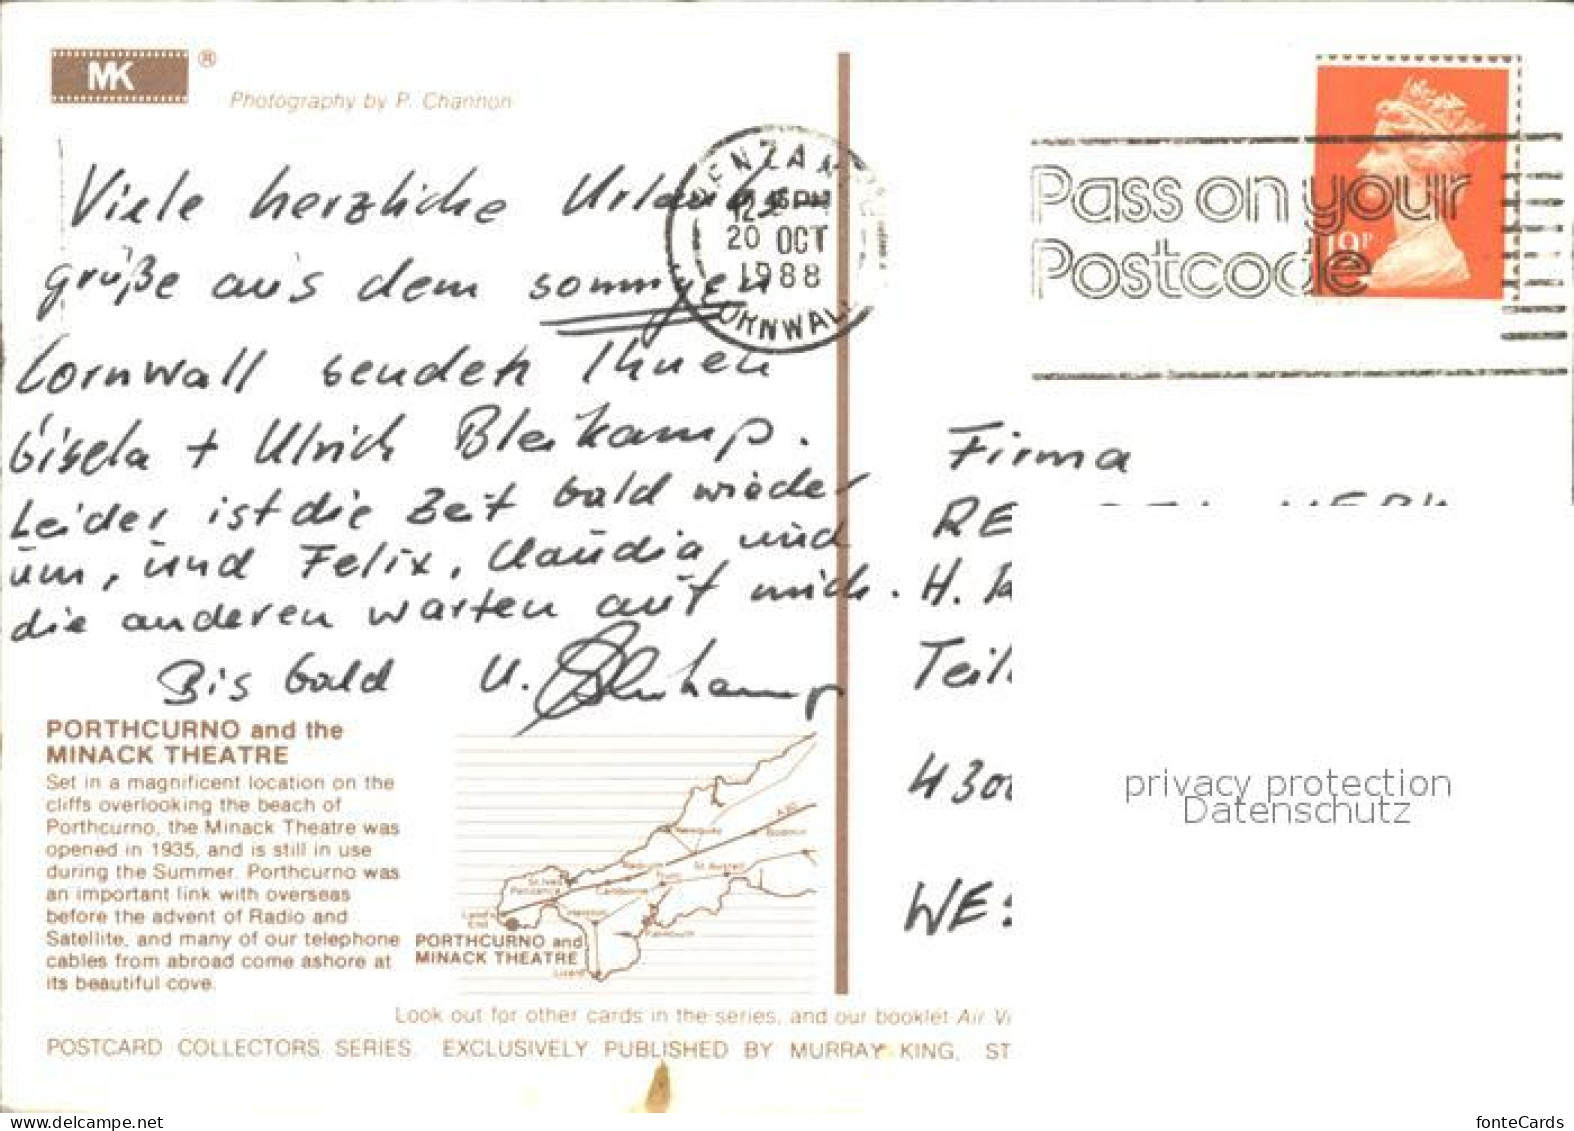 MK ®
Photography by P. Channon
Viele herzliche Urlaubs
grüße aus dem sonnigen
Cornwall senden Ihnen
Gisela + Ulrich Bleikamp.
Leider ist die Zeit bald wieder
um, und Felix, Claudia und
die anderen warten auf mich.
Bis bald U. Bleikamp
PENZANCE
12 15PM
20 OCT
1988
CORNWALL
Pass on your
Postcode
19P
Firma
H.
Teil
430
WES
privacy protection
Datenschutz
PORTHCURNO and the
MINACK THEATRE
Set in a magnificent location on the
cliffs overlooking the beach of
Porthcurno, the Minack Theatre was
opened in 1935, and is still in use
during the Summer. Porthcurno was
an important link with overseas
before the advent of Radio and
Satellite, and many of our telephone
cables from abroad come ashore at
its beautiful cove.
Newquay
Bodmin
Redruth
St. Austell
St. Ives
Truro
Penzance
Camborne
Land's
End
Helston
Falmouth
Lizard
PORTHCURNO and
MINACK THEATRE
Look out for other cards in the series, and our booklet Air Vi
POSTCARD COLLECTORS SERIES. EXCLUSIVELY PUBLISHED BY MURRAY KING, ST
fonteCards